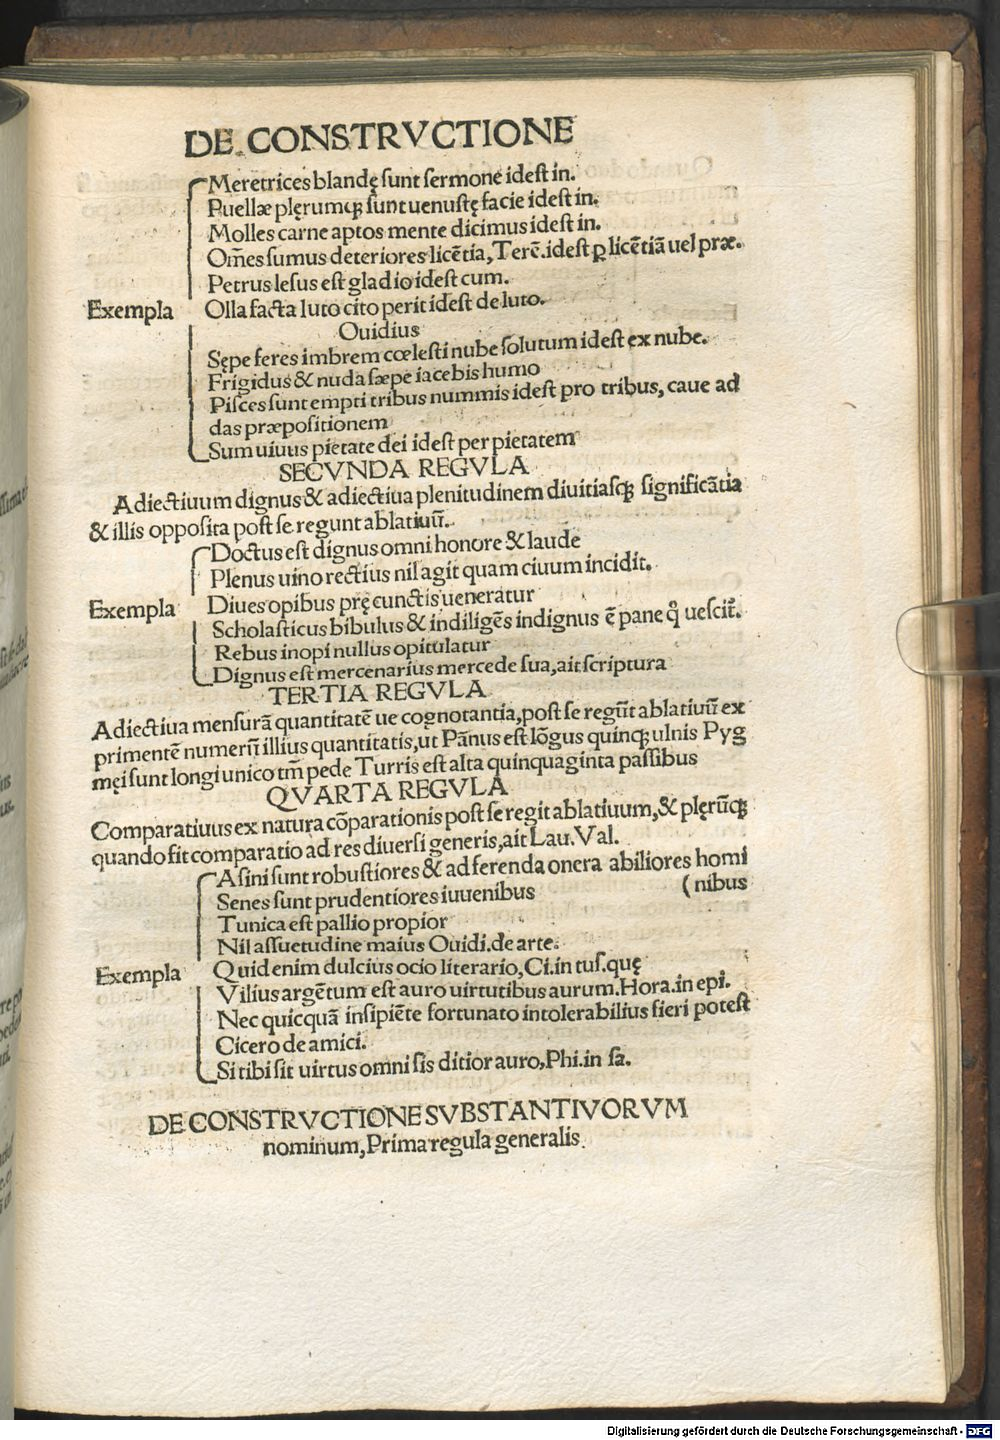 DE CONSTRVCTIONE
Meretrices blandę sunt sermone idest in.
Puellæ plęrumqꝫ sunt uenustę facie idest in.
Molles carne aptos mente dicimus idest in.
Om̄es sumus deteriores licētia, Terē. idest ꝑ licētiā uel præ.
Petrus lesus est gladio idest cum.
Exempla Olla facta luto cito perit idest de luto.
Ouidius
Sępe feres imbrem cœlesti nube solutum idest ex nube.
Frigidus & nuda sæpe iacebis humo
Pisces sunt empti tribus nummis idest pro tribus, caue ad
das præpositionem
Sum uiuus pietate dei idest per pietatem
SECVNDA REGVLA
Adiectiuum dignus & adiectiua plenitudinem diuitiasqꝫ significātia
& illis opposita post se regunt ablatiuū.
Doctus est dignus omni honore & laude
Plenus uino rectius nil agit quam ciuum incidit.
Exempla Diues opibus prę cunctis ueneratur
Scholasticus bibulus & indiligēs indignus ē pane q̊ uescit᷑.
Rebus inopi nullus opitulatur
Dignus est mercenarius mercede sua, ait scriptura
TERTIA REGVLA
Adiectiua mensurā quantitatē ue cognotantia, post se regūt ablatiuū ex
primentē numerū illius quantitatis, ut Pānus est lōgus quinqꝫ ulnis Pyg
męi sunt longi unico tm̄ pede Turris est alta quinquaginta passibus
QVARTA REGVLA
Comparatiuus ex natura cōparationis post se regit ablatiuum, & plęrūqꝫ
quando fit comparatio ad res diuersi generis, ait Lau. Val.
Asini sunt robustiores & ad ferenda onera abiliores homi
Senes sunt prudentiores iuuenibus (nibus
Tunica est pallio propior
Nil assuetudine maius Ouidi. de arte.
Exempla Quid enim dulcius ocio literario, Ci. in tus. quę
Vilius argētum est auro uirtutibus aurum. Hora. in epi.
Nec quicquā insipiēte fortunato intolerabilius fieri potest
Cicero de amici.
Si tibi sit uirtus omni sis ditior auro, Phi. in sa.
DE CONSTRVCTIONE SVBSTANTIVORVM
nominum, Prima regula generalis.
Digitalisierung gefördert durch die Deutsche Forschungsgemeinschaft - DFG